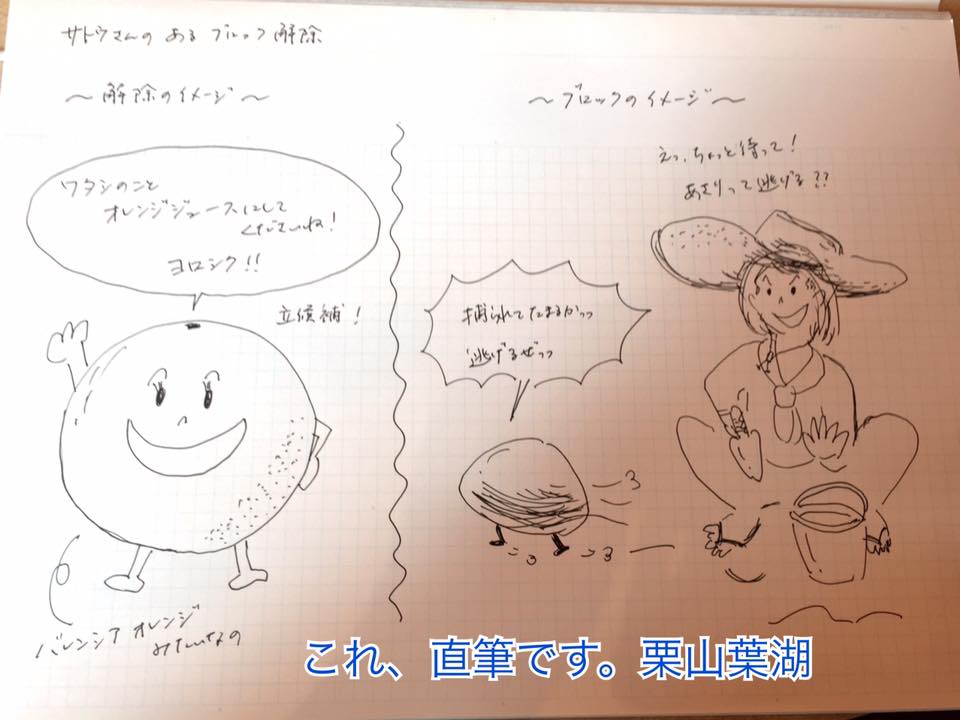 サトウさんの ある ブロック解除
〜 解除のイメージ 〜
ワタシのこと
オレンジジュースにして
くださいね！
ヨロシク！！
立候補！
バレンシア オレンジ
みたいなの
〜 ブロックのイメージ 〜
えっ、ちょっと待って！
あさりって逃げる？？
捕られてたまるかっっ
逃げるぜっっ
これ、直筆です。栗山葉湖